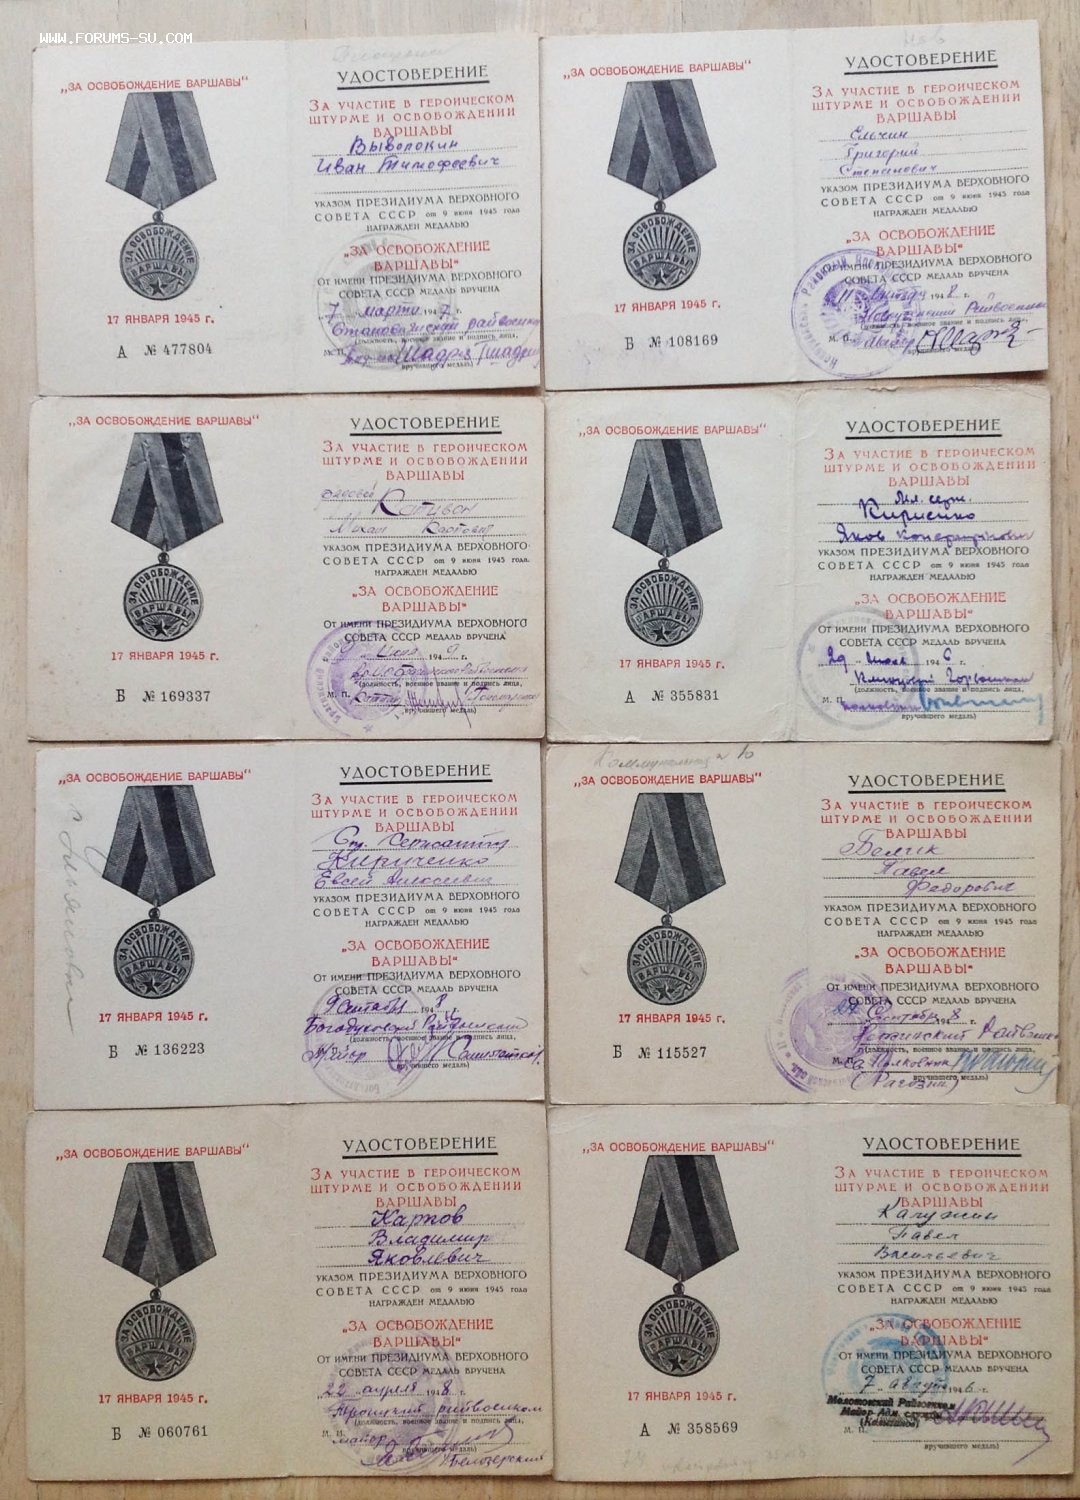 WWW.FORUMS-SU.COM
„ЗА ОСВОБОЖДЕНИЕ ВАРШАВЫ“
ЗА ОСВОБОЖДЕНИЕ
ВАРШАВЫ
17 ЯНВАРЯ 1945 г.
А № 477804
УДОСТОВЕРЕНИЕ
ЗА УЧАСТИЕ В ГЕРОИЧЕСКОМ
ШТУРМЕ И ОСВОБОЖДЕНИИ
ВАРШАВЫ
Выволокин
Иван Тимофеевич
УКАЗОМ ПРЕЗИДИУМА ВЕРХОВНОГО
СОВЕТА СССР от 9 июня 1945 года
НАГРАЖДЕН МЕДАЛЬЮ
„ЗА ОСВОБОЖДЕНИЕ
ВАРШАВЫ“
ОТ ИМЕНИ ПРЕЗИДИУМА ВЕРХОВНОГО
СОВЕТА СССР МЕДАЛЬ ВРУЧЕНА
7 марта 1947 г.
райвоенком
(должность, военное звание и подпись лица,
М. П.
вручившего медаль)
„ЗА ОСВОБОЖДЕНИЕ ВАРШАВЫ“
ЗА ОСВОБОЖДЕНИЕ
ВАРШАВЫ
17 ЯНВАРЯ 1945 г.
Б № 108169
УДОСТОВЕРЕНИЕ
ЗА УЧАСТИЕ В ГЕРОИЧЕСКОМ
ШТУРМЕ И ОСВОБОЖДЕНИИ
ВАРШАВЫ
Ельчин
Григорий
Степанович
УКАЗОМ ПРЕЗИДИУМА ВЕРХОВНОГО
СОВЕТА СССР от 9 июня 1945 года
НАГРАЖДЕН МЕДАЛЬЮ
„ЗА ОСВОБОЖДЕНИЕ
ВАРШАВЫ“
ОТ ИМЕНИ ПРЕЗИДИУМА ВЕРХОВНОГО
СОВЕТА СССР МЕДАЛЬ ВРУЧЕНА
11 1948 г.
Райвоенком
(должность, военное звание и подпись лица,
М. П. Майор
вручившего медаль)
„ЗА ОСВОБОЖДЕНИЕ ВАРШАВЫ“
ЗА ОСВОБОЖДЕНИЕ
ВАРШАВЫ
17 ЯНВАРЯ 1945 г.
Б № 169337
УДОСТОВЕРЕНИЕ
ЗА УЧАСТИЕ В ГЕРОИЧЕСКОМ
ШТУРМЕ И ОСВОБОЖДЕНИИ
ВАРШАВЫ
рядовой
УКАЗОМ ПРЕЗИДИУМА ВЕРХОВНОГО
СОВЕТА СССР от 9 июня 1945 года.
НАГРАЖДЕН МЕДАЛЬЮ
„ЗА ОСВОБОЖДЕНИЕ
ВАРШАВЫ“
ОТ ИМЕНИ ПРЕЗИДИУМА ВЕРХОВНОГО
СОВЕТА СССР МЕДАЛЬ ВРУЧЕНА
9 1949 г.
(должность, военное звание и подпись лица,
М. П.
вручившего медаль)
„ЗА ОСВОБОЖДЕНИЕ ВАРШАВЫ“
ЗА ОСВОБОЖДЕНИЕ
ВАРШАВЫ
17 ЯНВАРЯ 1945 г.
А № 355831
УДОСТОВЕРЕНИЕ
ЗА УЧАСТИЕ В ГЕРОИЧЕСКОМ
ШТУРМЕ И ОСВОБОЖДЕНИИ
ВАРШАВЫ
Мл. серж.
Кирсенко
Яков
УКАЗОМ ПРЕЗИДИУМА ВЕРХОВНОГО
СОВЕТА СССР от 9 июня 1945 года
НАГРАЖДЕН МЕДАЛЬЮ
„ЗА ОСВОБОЖДЕНИЕ
ВАРШАВЫ“
ОТ ИМЕНИ ПРЕЗИДИУМА ВЕРХОВНОГО
СОВЕТА СССР МЕДАЛЬ ВРУЧЕНА
29 июля 1946 г.
Горвоенком
(должность, военное звание и подпись лица,
М. П.
вручившего медаль)
„ЗА ОСВОБОЖДЕНИЕ ВАРШАВЫ“
ЗА ОСВОБОЖДЕНИЕ
ВАРШАВЫ
17 ЯНВАРЯ 1945 г.
Б № 136223
УДОСТОВЕРЕНИЕ
ЗА УЧАСТИЕ В ГЕРОИЧЕСКОМ
ШТУРМЕ И ОСВОБОЖДЕНИИ
ВАРШАВЫ
Кириченко
Евсей Алексеевич
УКАЗОМ ПРЕЗИДИУМА ВЕРХОВНОГО
СОВЕТА СССР от 9 июня 1945 года
НАГРАЖДЕН МЕДАЛЬЮ
„ЗА ОСВОБОЖДЕНИЕ
ВАРШАВЫ“
ОТ ИМЕНИ ПРЕЗИДИУМА ВЕРХОВНОГО
СОВЕТА СССР МЕДАЛЬ ВРУЧЕНА
9 сентября 1948 г.
Богодуховский Райвоенком
(должность, военное звание и подпись лица,
Майор
вручившего медаль)
„ЗА ОСВОБОЖДЕНИЕ ВАРШАВЫ“
ЗА ОСВОБОЖДЕНИЕ
ВАРШАВЫ
17 ЯНВАРЯ 1945 г.
Б № 115527
УДОСТОВЕРЕНИЕ
ЗА УЧАСТИЕ В ГЕРОИЧЕСКОМ
ШТУРМЕ И ОСВОБОЖДЕНИИ
ВАРШАВЫ
Павел
Федорович
УКАЗОМ ПРЕЗИДИУМА ВЕРХОВНОГО
СОВЕТА СССР от 9 июня 1945 года
НАГРАЖДЕН МЕДАЛЬЮ
„ЗА ОСВОБОЖДЕНИЕ
ВАРШАВЫ“
ОТ ИМЕНИ ПРЕЗИДИУМА ВЕРХОВНОГО
СОВЕТА СССР МЕДАЛЬ ВРУЧЕНА
Сентября 1948 г.
Райвоенком
(должность, военное звание и подпись лица,
М. П.
вручившего медаль)
(Рагозин)
„ЗА ОСВОБОЖДЕНИЕ ВАРШАВЫ“
ЗА ОСВОБОЖДЕНИЕ
ВАРШАВЫ
17 ЯНВАРЯ 1945 г.
Б № 060761
УДОСТОВЕРЕНИЕ
ЗА УЧАСТИЕ В ГЕРОИЧЕСКОМ
ШТУРМЕ И ОСВОБОЖДЕНИИ
ВАРШАВЫ
Карпов
Владимир
Яковлевич
УКАЗОМ ПРЕЗИДИУМА ВЕРХОВНОГО
СОВЕТА СССР от 9 июня 1945 года
НАГРАЖДЕН МЕДАЛЬЮ
„ЗА ОСВОБОЖДЕНИЕ
ВАРШАВЫ“
ОТ ИМЕНИ ПРЕЗИДИУМА ВЕРХОВНОГО
СОВЕТА СССР МЕДАЛЬ ВРУЧЕНА
22 апреля 1948 г.
Троицкий райвоенком
(должность, военное звание и подпись лица,
М. П. майор
вручившего медаль)
Белозерский
„ЗА ОСВОБОЖДЕНИЕ ВАРШАВЫ“
ЗА ОСВОБОЖДЕНИЕ
ВАРШАВЫ
17 ЯНВАРЯ 1945 г.
А № 358569
УДОСТОВЕРЕНИЕ
ЗА УЧАСТИЕ В ГЕРОИЧЕСКОМ
ШТУРМЕ И ОСВОБОЖДЕНИИ
ВАРШАВЫ
Калужин
Павел
Васильевич
УКАЗОМ ПРЕЗИДИУМА ВЕРХОВНОГО
СОВЕТА СССР от 9 июня 1945 года
НАГРАЖДЕН МЕДАЛЬЮ
„ЗА ОСВОБОЖДЕНИЕ
ВАРШАВЫ“
ОТ ИМЕНИ ПРЕЗИДИУМА ВЕРХОВНОГО
СОВЕТА СССР МЕДАЛЬ ВРУЧЕНА
7 августа 1946 г.
Молотовский Райвоенком
Майор Адм. службы
М. П.
вручившего медаль)